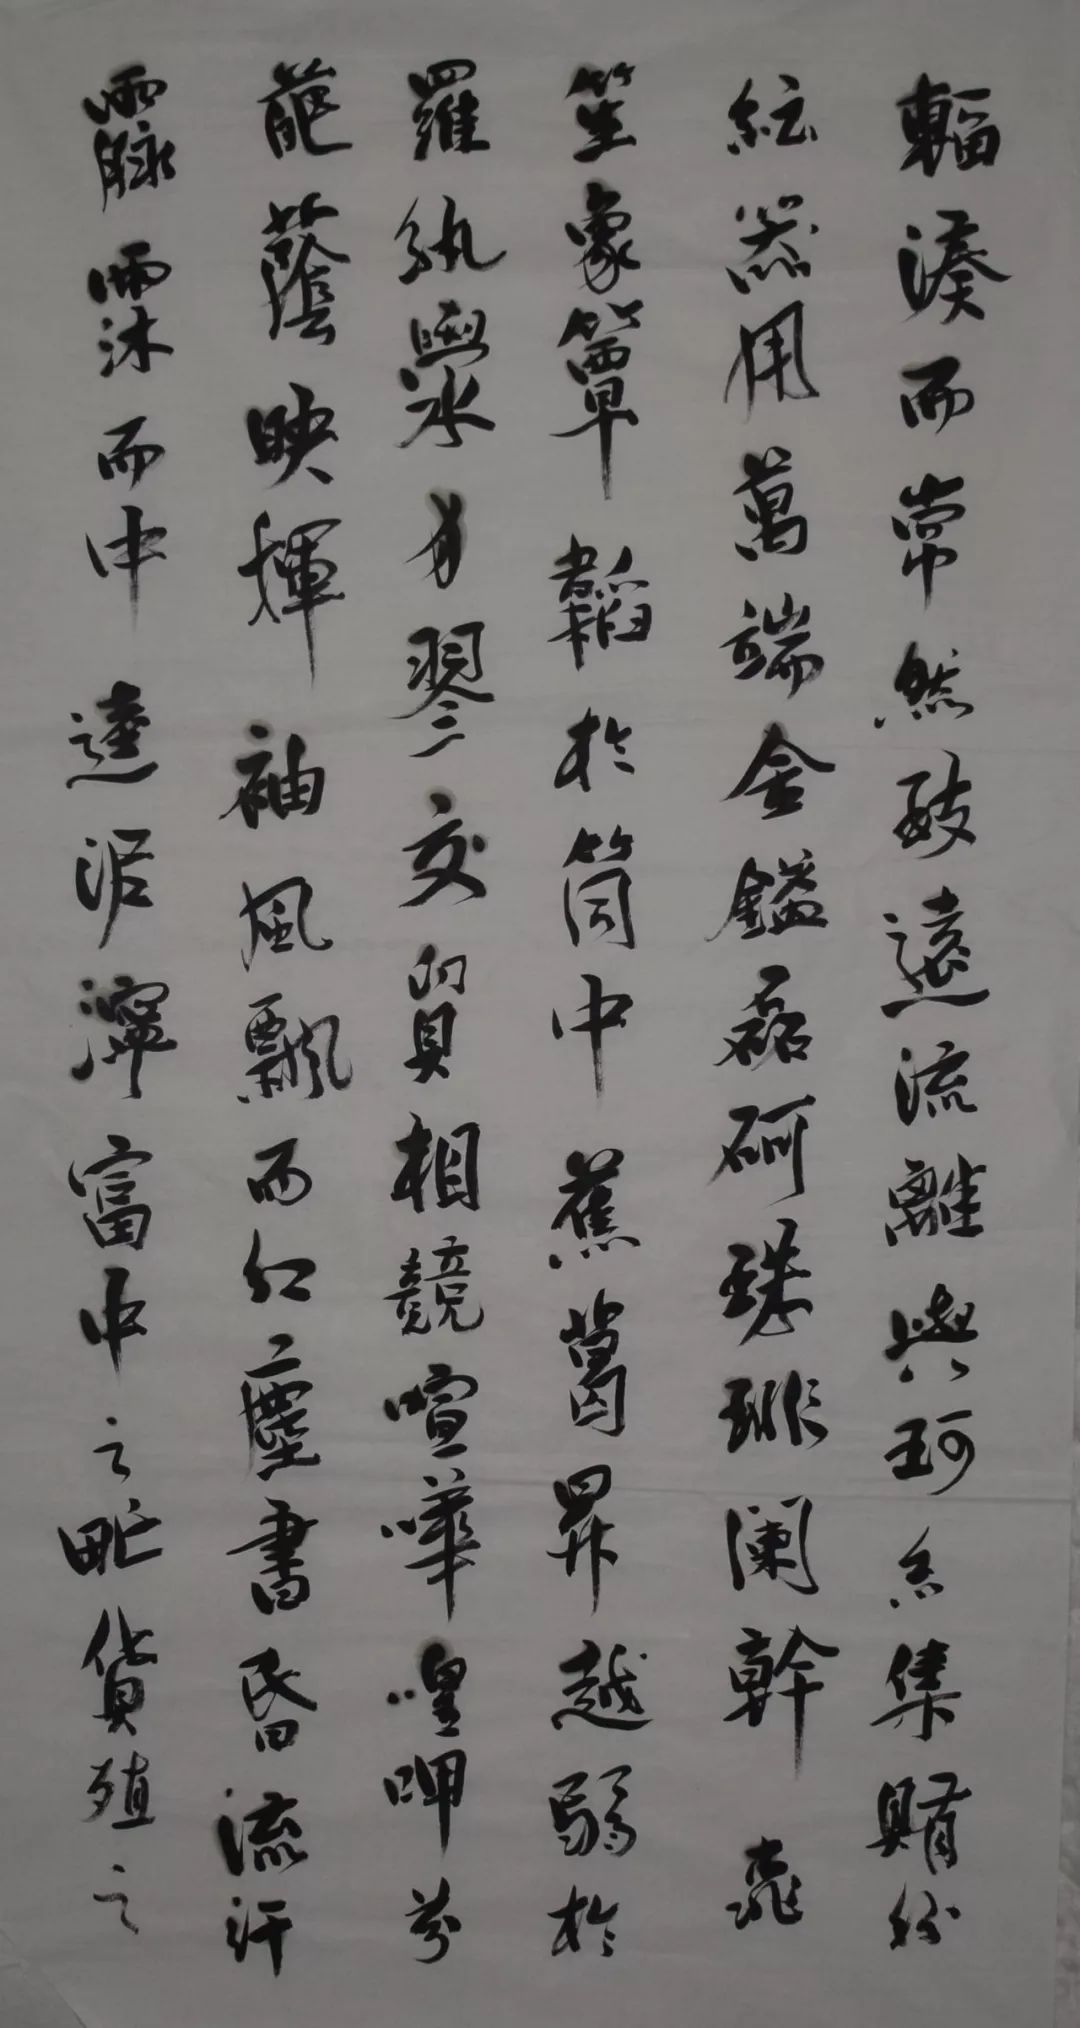 輻湊而常然致遠流離與珂糸集賄紛
紜器用萬端金鎰磊砢珠琲闌幹桃
笙象簟韜於筒中蕉葛昇越弱於
羅紈澩㺒交貿相競喧嘩喤呷芬
葩蔭映揮袖風飄而紅塵書昏流汗
霡霂而中逵泥濘富中之甿貨殖之